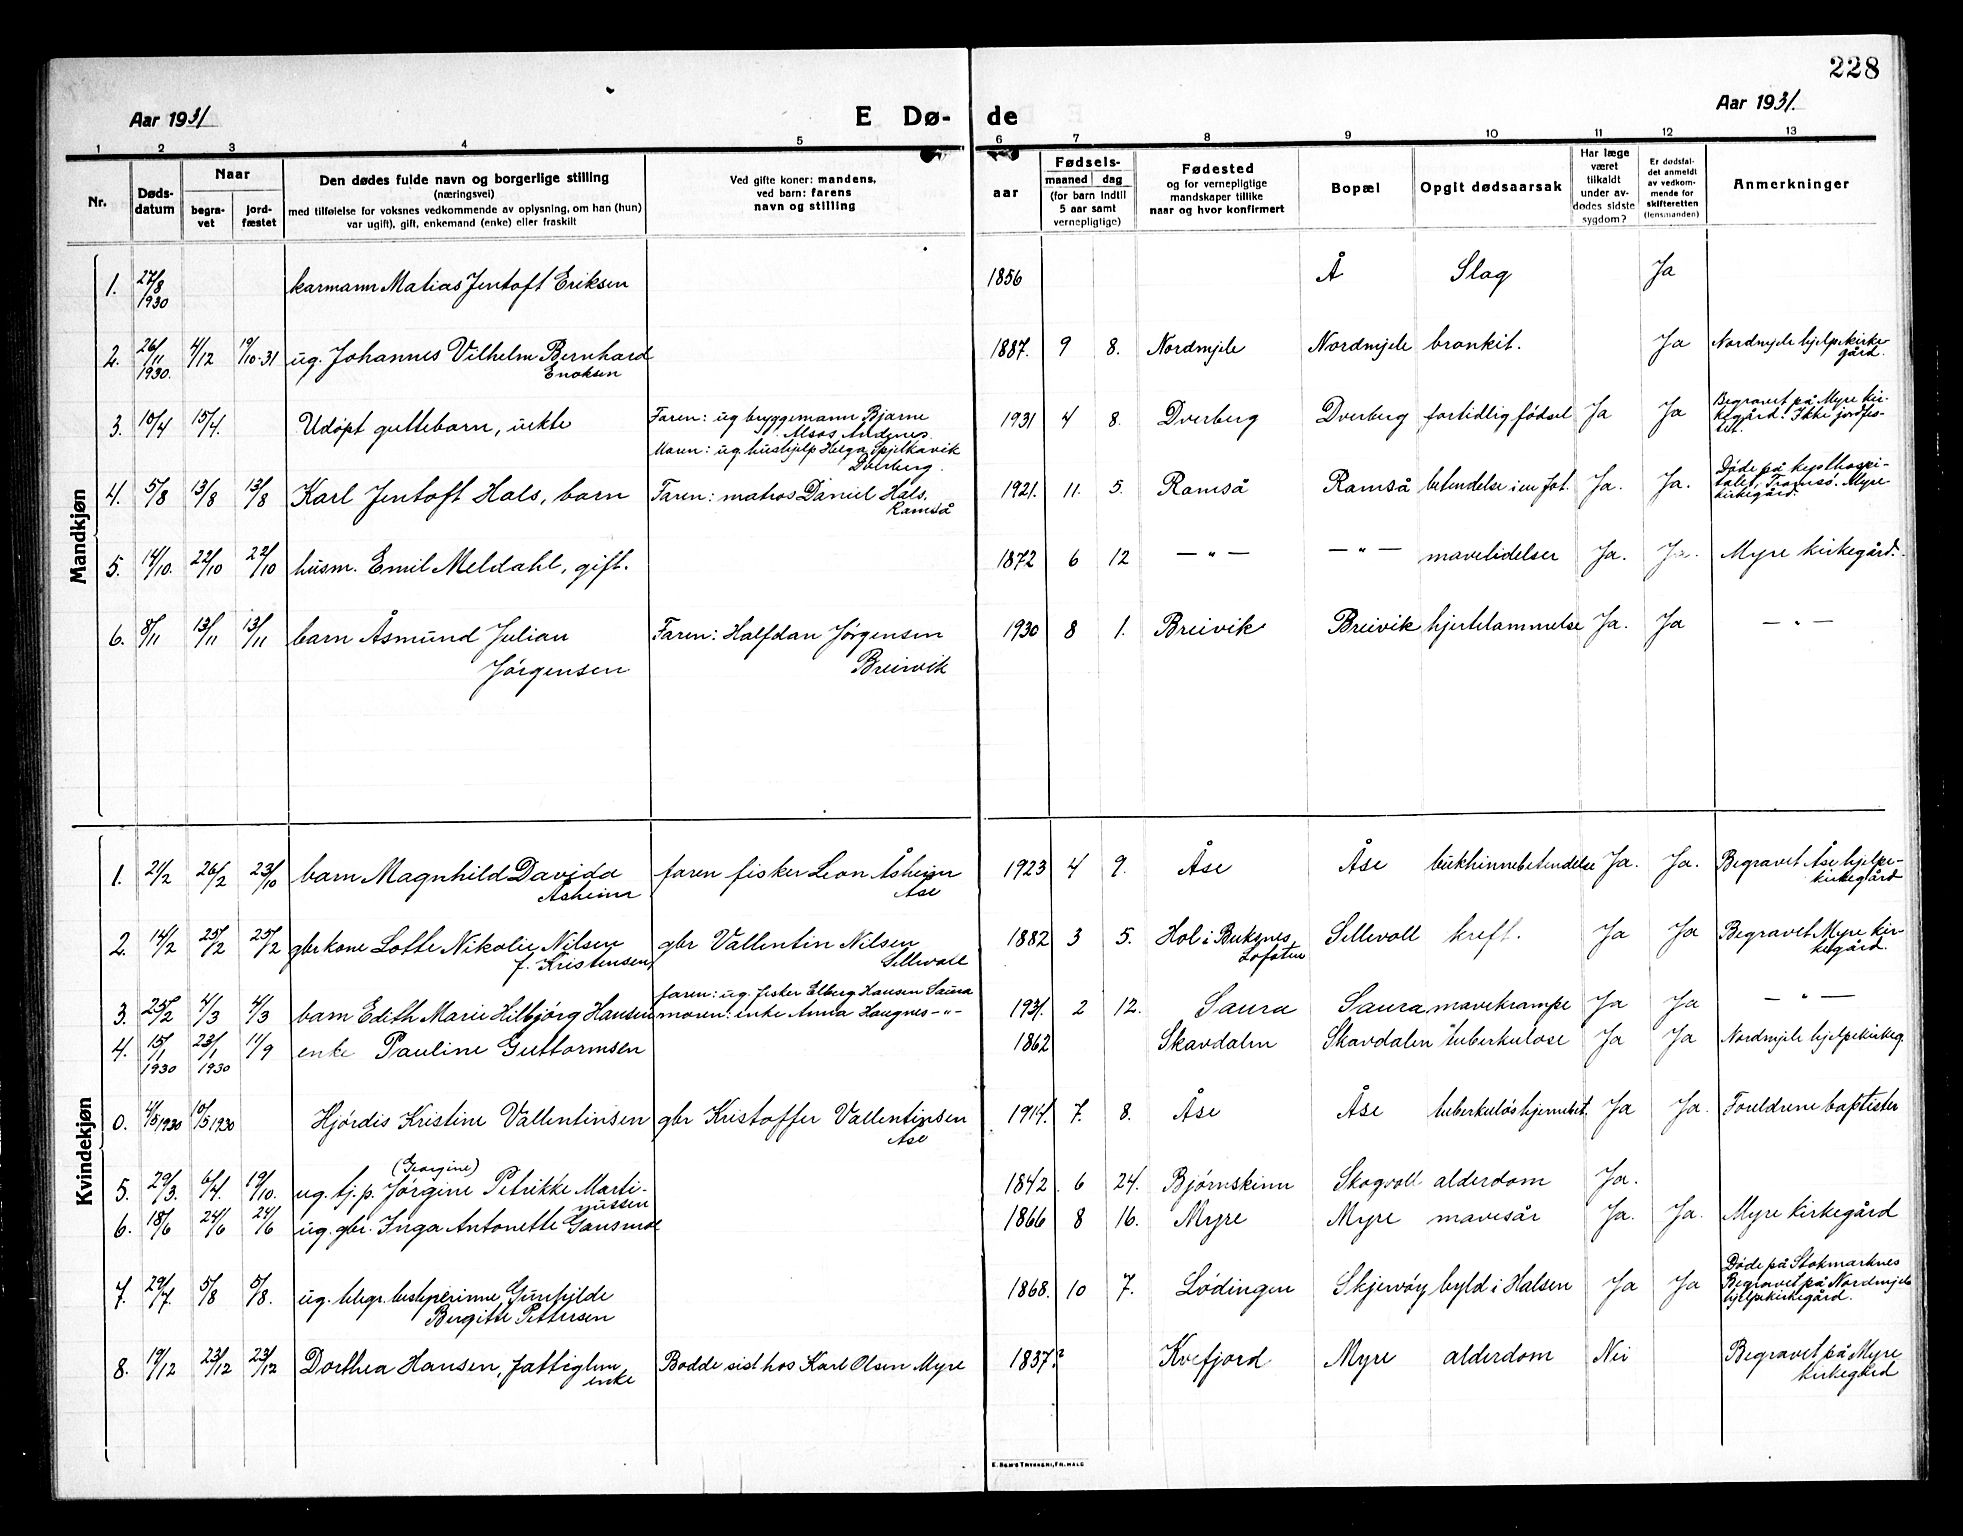 228
Aar 1931
E Dø-
de
Aar 1931.
1 2 3 4 5 6 7 8 9 10 11 12 13
Nr.
Døds-
datum
Naar
begra-
vet
jord-
fæstet
Den dødes fulde navn og borgerlige stilling
(næringsvei)
med tilføielse for voksnes vedkommende av oplysning, om han (hun)
var ugift), gift, enkemand (enke) eller fraskilt
Ved gifte koner: mandens,
ved barn: farens
navn og stilling
aar
Fødsels-
maaned dag
(for barn indtil
5 aar samt
vernepligtige)
Fødested
og for vernepligtige
mandskaper tillike
naar og hvor konfirmert
Bopæl
Opgit dødsaarsak
Har læge
været
tilkaldt
under av-
dødes sidste
sygdom?
Er dødsfal-
det anmeldt
av vedkom-
mende for
skifteretten
(lensmanden)
Anmerkninger
Mandkjøn
1. 27/8 1930 karmann Matias Jentoft Eriksen 1856 Å Slag Ja
2. 26/11 1930. 4/12 19/10-31 ug. Johannes Vilhelm Bernhard 1887. 9 8. Nordmjele Nordmjele bronkit. Ja Nordmjele hjelpekirke-
Enoksen gård.
3. 10/4 15/4. Udøpt guttebarn, uekte Faren: ug bryggemann Bjarne 1931 4 8. Dverberg Dverberg fortidlig fødsel Ja Ja Begravet på Myre kir-
Andenes. kegård. Ikke jordfes-
Moren: ug hushjelp Helga Spjelkavik tet.
Dverberg.
4. 5/8 13/8 13/8 Karl Jentoft Hals, barn Faren: matros Daniel Hals, 1921. 11. 5. Ramså Ramså betendelse i en fot. Ja. Ja. Døde på kysthospi-
Ramså talet, Tromsø. Myre
kirkegård.
5. 14/10. 22/10 22/10 husm. Emil Meldahl, gift. 1872 6 12 — " — — " — mavelidelser Ja. Ja. Myre kirkegård.
6. 8/11 13/11 13/11 barn Åsmund Julian Faren: Halfdan Jørgensen 1930 8 1. Breivik Breivik hjertelammelse Ja. Ja — " —
Jørgensen Breivik
Kvindekjøn
1. 21/2 26/2 23/10 barn Magnhild Davida faren fisker Leon Åsheim 1923 4 9. Åse Åse bukhinnebetendelse Ja. Ja. Begravet Åse hjelpe-
Åsheim Åse kirkegård
2. 14/2 25/2 25/2 gbr kone Lotte Nikolie Nilsen gbr Vallentin Nilsen 1882 3 5. Hol i Buksnes Sellevoll kreft. Ja Ja Begravet Myre kir-
f. Kristensen Sellevoll Lofoten kegård.
3. 25/2 4/3 4/3 barn Edith Marie Hilbjørg Hansen faren: ug. fisker Elberg Hansen Saura 1931. 2 12. Saura Saura mavekrampe Ja Ja — " —
moren: enke Anna Haugnes -"-
4. 15/1 1930 23/1 1930 11/9 enke Pauline Guttormsen 1862 Skavdalen Skavdalen tuberkulose Ja Ja Nordmjele hjelpekirkeg.
0. 4/5 1930 10/5 1930 Hjørdis Kristine Vallentinsen gbr Kristoffer Vallentinsen 1914. 7. 8. Åse Åse tuberkuløs hjernebet. Ja Ja. Foreldrene baptister
Åse
5. 29/3. 6/4. 19/10. ug. tj. p. Jørgine (Georgine) Petrikke Marti- 1842. 6 24. Bjørnskinn Skogvoll alderdom Ja.
nussen
6. 18/6 24/6 24/6 ug. gbr. Inga Antonette Gansmoe 1866 8 16. Myre Myre mavesår Ja. Ja. Myre kirkegård
7. 29/7. 5/8 5/8. ug. telegr. bestyrerinne Gunhilde 1868. 10 7. Lødingen Skjervøy byld i Halsen Ja Ja Døde på Stokmarknes
Bergitte Pettersen Begravet på Nordmjele
hjelpekirkegård.
8. 19/12 23/12 23/12 Dorthea Hansen, fattiglem Bodde sist hos Karl Olsen Myre 1837? Kvefjord Myre alderdom Nei Begravet på Myre
enke kirkegård